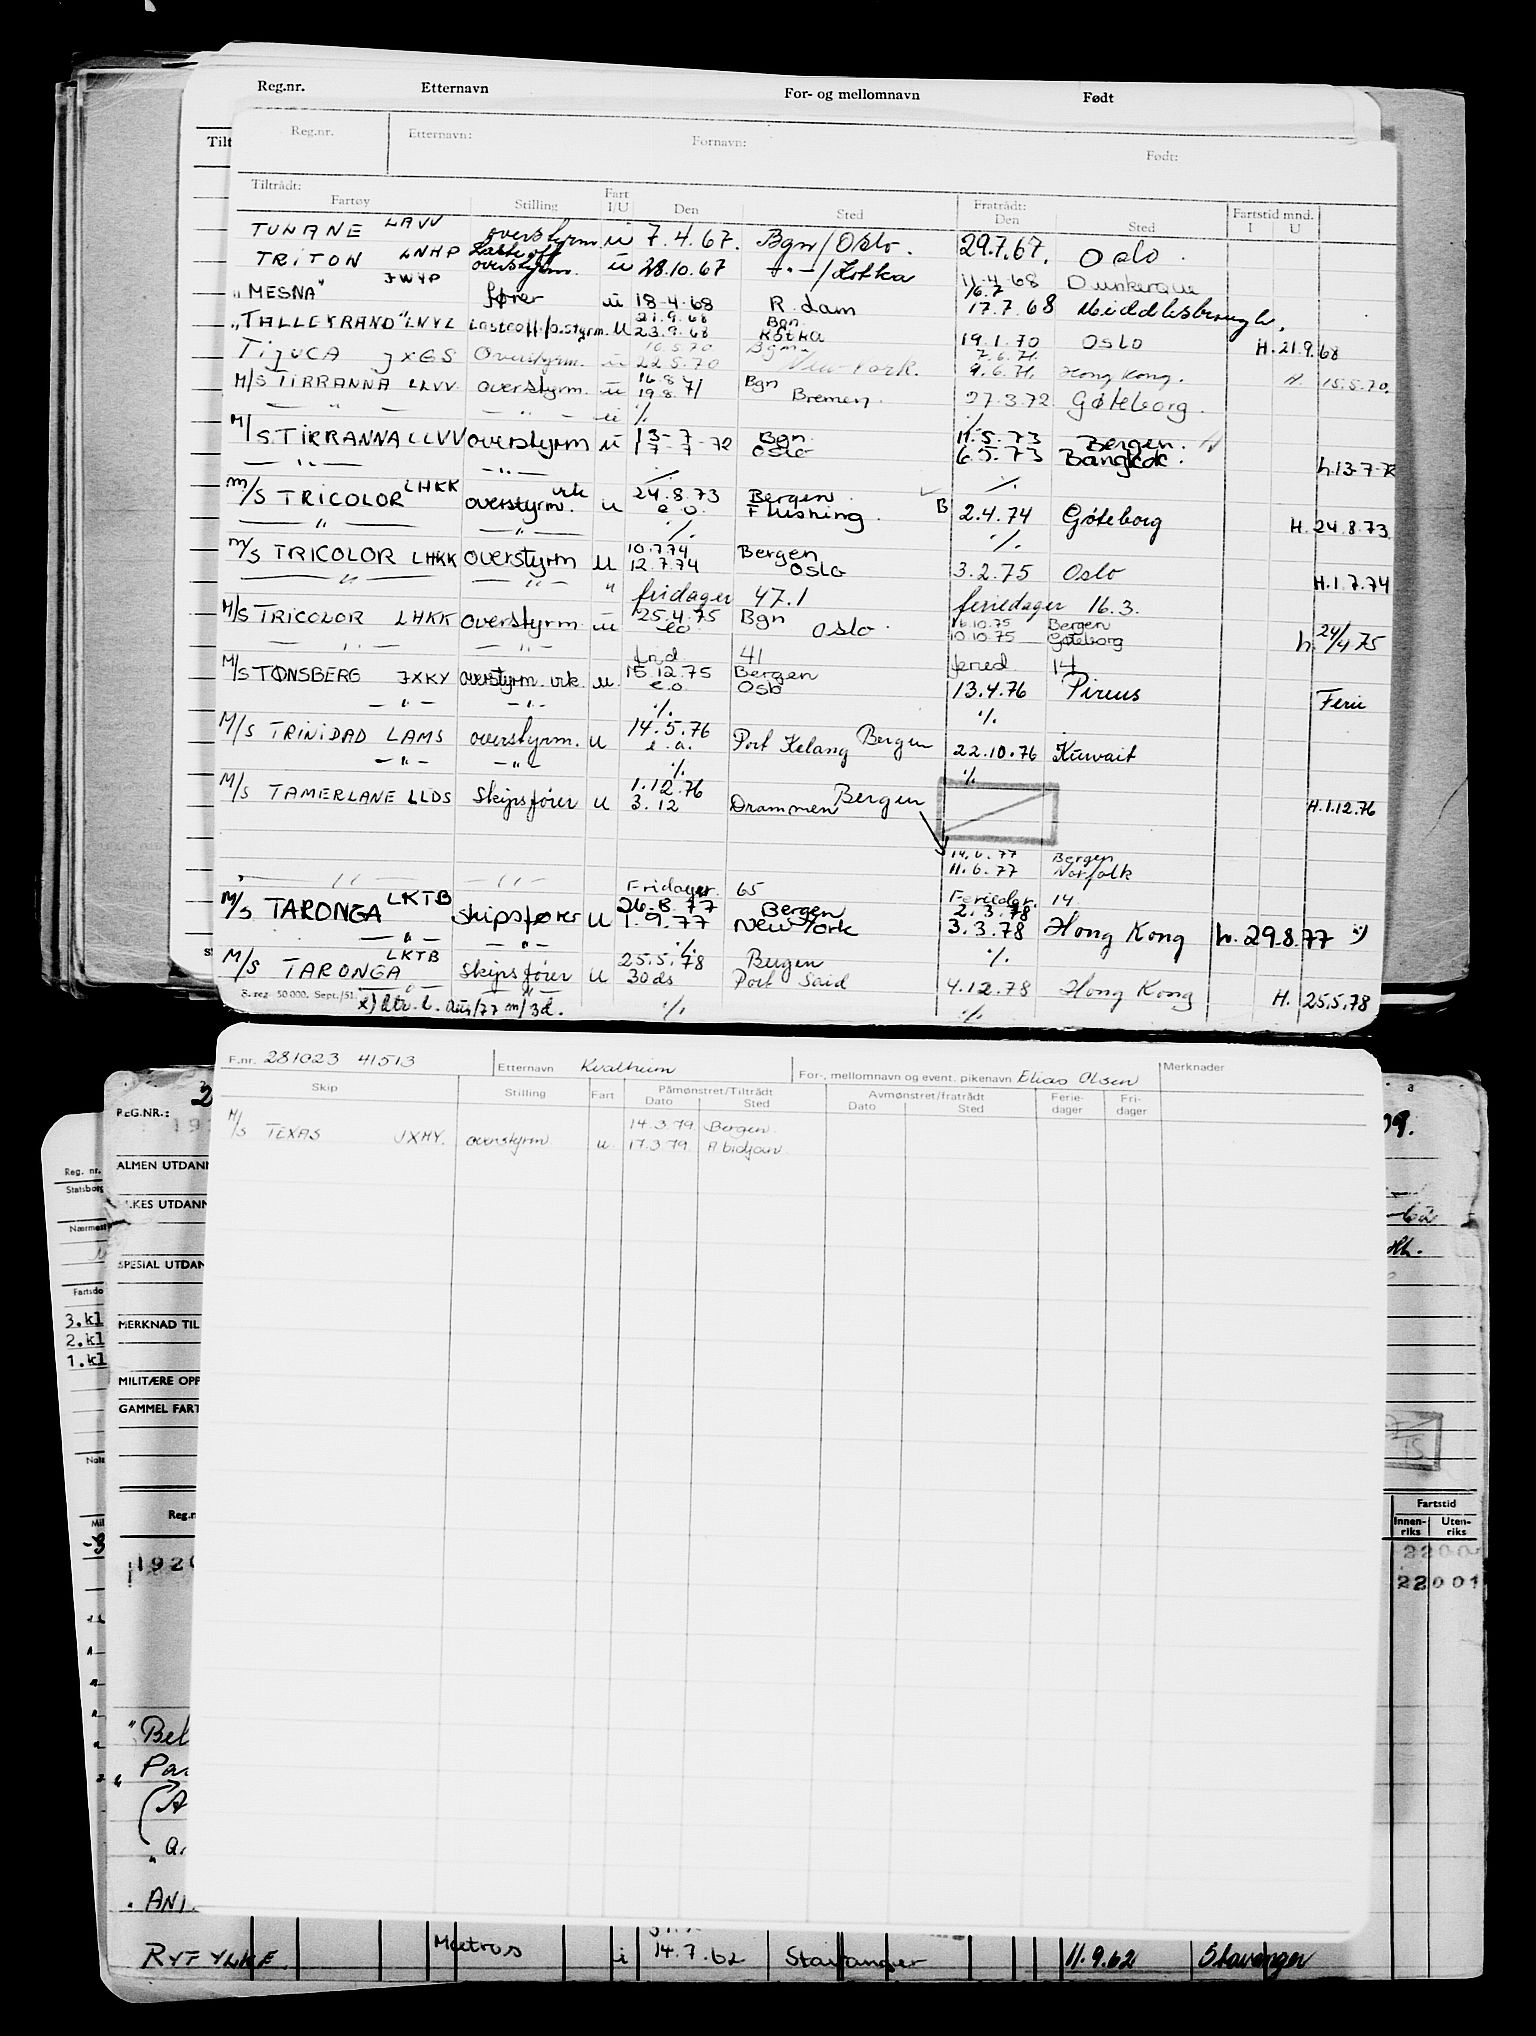 Reg.nr. Etternavn For- og mellomnavn Født
Reg.nr. Etternavn: Fornavn: Født:
Tilt
Tiltrådt: Fratrådt:
Fartøy Stilling Fart I/U Den Sted Den Sted Fartstid mnd. I U
LAVV overstyrm u 7.4.67. Bgn/Oslo. 29.7.67. Oslo.
TRITON LNHP overstyrm. u 28.10.67 -"-/Kotka 11.4.68 Dunkerque
"MESNA" JWYP fører u 18-4-68 R.dam 16.7 17.7.68 Middlesbrough.
21.9.68 Bgn.
"TALLEYRAND" LNVL u 23.9.68 Kotka 19.1.70 Oslo H.21.9.68
TIJUCA JXGS Overstyrm. u 22.5.70 New York. 7.6.71. Hong Kong. H. 15.5.70.
M/S TIRRANNA LLVV overstyrm. u 16.8 19.8.71 Bgn Bremen. 27.3.72 Gøteborg.
— " — — " — u %
M/S TIRRANNA LLVV overstyrm u 13-7 17-7-72 Bgn. Oslo 11.5.73 Bergen.
6.5.73 Bangkok. h.13-7-72
— " — — " —
M/S TRICOLOR LHKK overstyrm. vik u 24.8.73 e.o. Bergen Flushing. B 2.4.74 Gøteborg H. 24.8.73.
— " — — " — % %
M/S TRICOLOR LHKK overstyrm u 10.7.74 12.7.74 Bergen Oslo 3.2.75 Oslo H.1.7.74
— " — — " — " fridager 47.1 feriedager 16.3.
M/S TRICOLOR LHKK overstyrm u 25.4.75 eo Bgn Oslo. 6.10.75 Bergen
10.10.75 Gøteborg h. 24/4.75
— " — — " — frid 41 feried 14
M/S TØNSBERG JXKY overstyrm. vik. u. 15.12.75 e.o. Bergen Oslo 13.4.76 Pireus Ferie
— " — — " — % %
M/S TRINIDAD LAMS overstyrm. u 14.5.76 e.a. Port Kelang Bergen 22.10.76 Kuwait
— " — — " — % %
M/S TAMERLANE LLDS Skipsfører u 1.12.76 3.12 Drammen Bergen H.1.12.76
14.6.77 Bergen
11.6.77 Norfolk
— " — — " — Fridager. 65 Feriedgr. 14
M/S TARONGA LKTB Skipsfører u 26.8.77 1.9.77 Bergen New York 2.3.78 3.3.78 Hong Kong h. 29.8.77 x)
— " — — " — % %
M/S TARONGA LKTB Skipsfører u 25.5.78 30 ds Bergen Port Said 4.12.78 Hong Kong H. 25.5.78
S. reg. 50 000. Sept./51. % %
F.nr. 281023 41513 Etternavn Kvalheim For-, mellomnavn og event. pikenavn Elias Olsen Merknader
Skip Stilling Fart Påmønstret/Tiltrådt Dato Sted Avmønstret/fratrådt Dato Sted Ferie-dager Fri-dager
M/S TEXAS JXMY. overstyrm u. 14.3.79. Bergen.
17.3.79. Abidjan.
REG.NR.: 2
ALMEN UTDANN
SPESIAL UTDAN
MERKNAD TIL
MILITÆRE OPP
GAMMEL FART
Reg. nr.
Statsborg
Nærmest
Fartsdo
3.kl
2.kl
1.kl
Fartstid
Innen-riks Uten-riks
22001
"Bel
ANI
RYFYLKE. Matros i 14.7.62 Stavanger 11.9.62 Stavanger